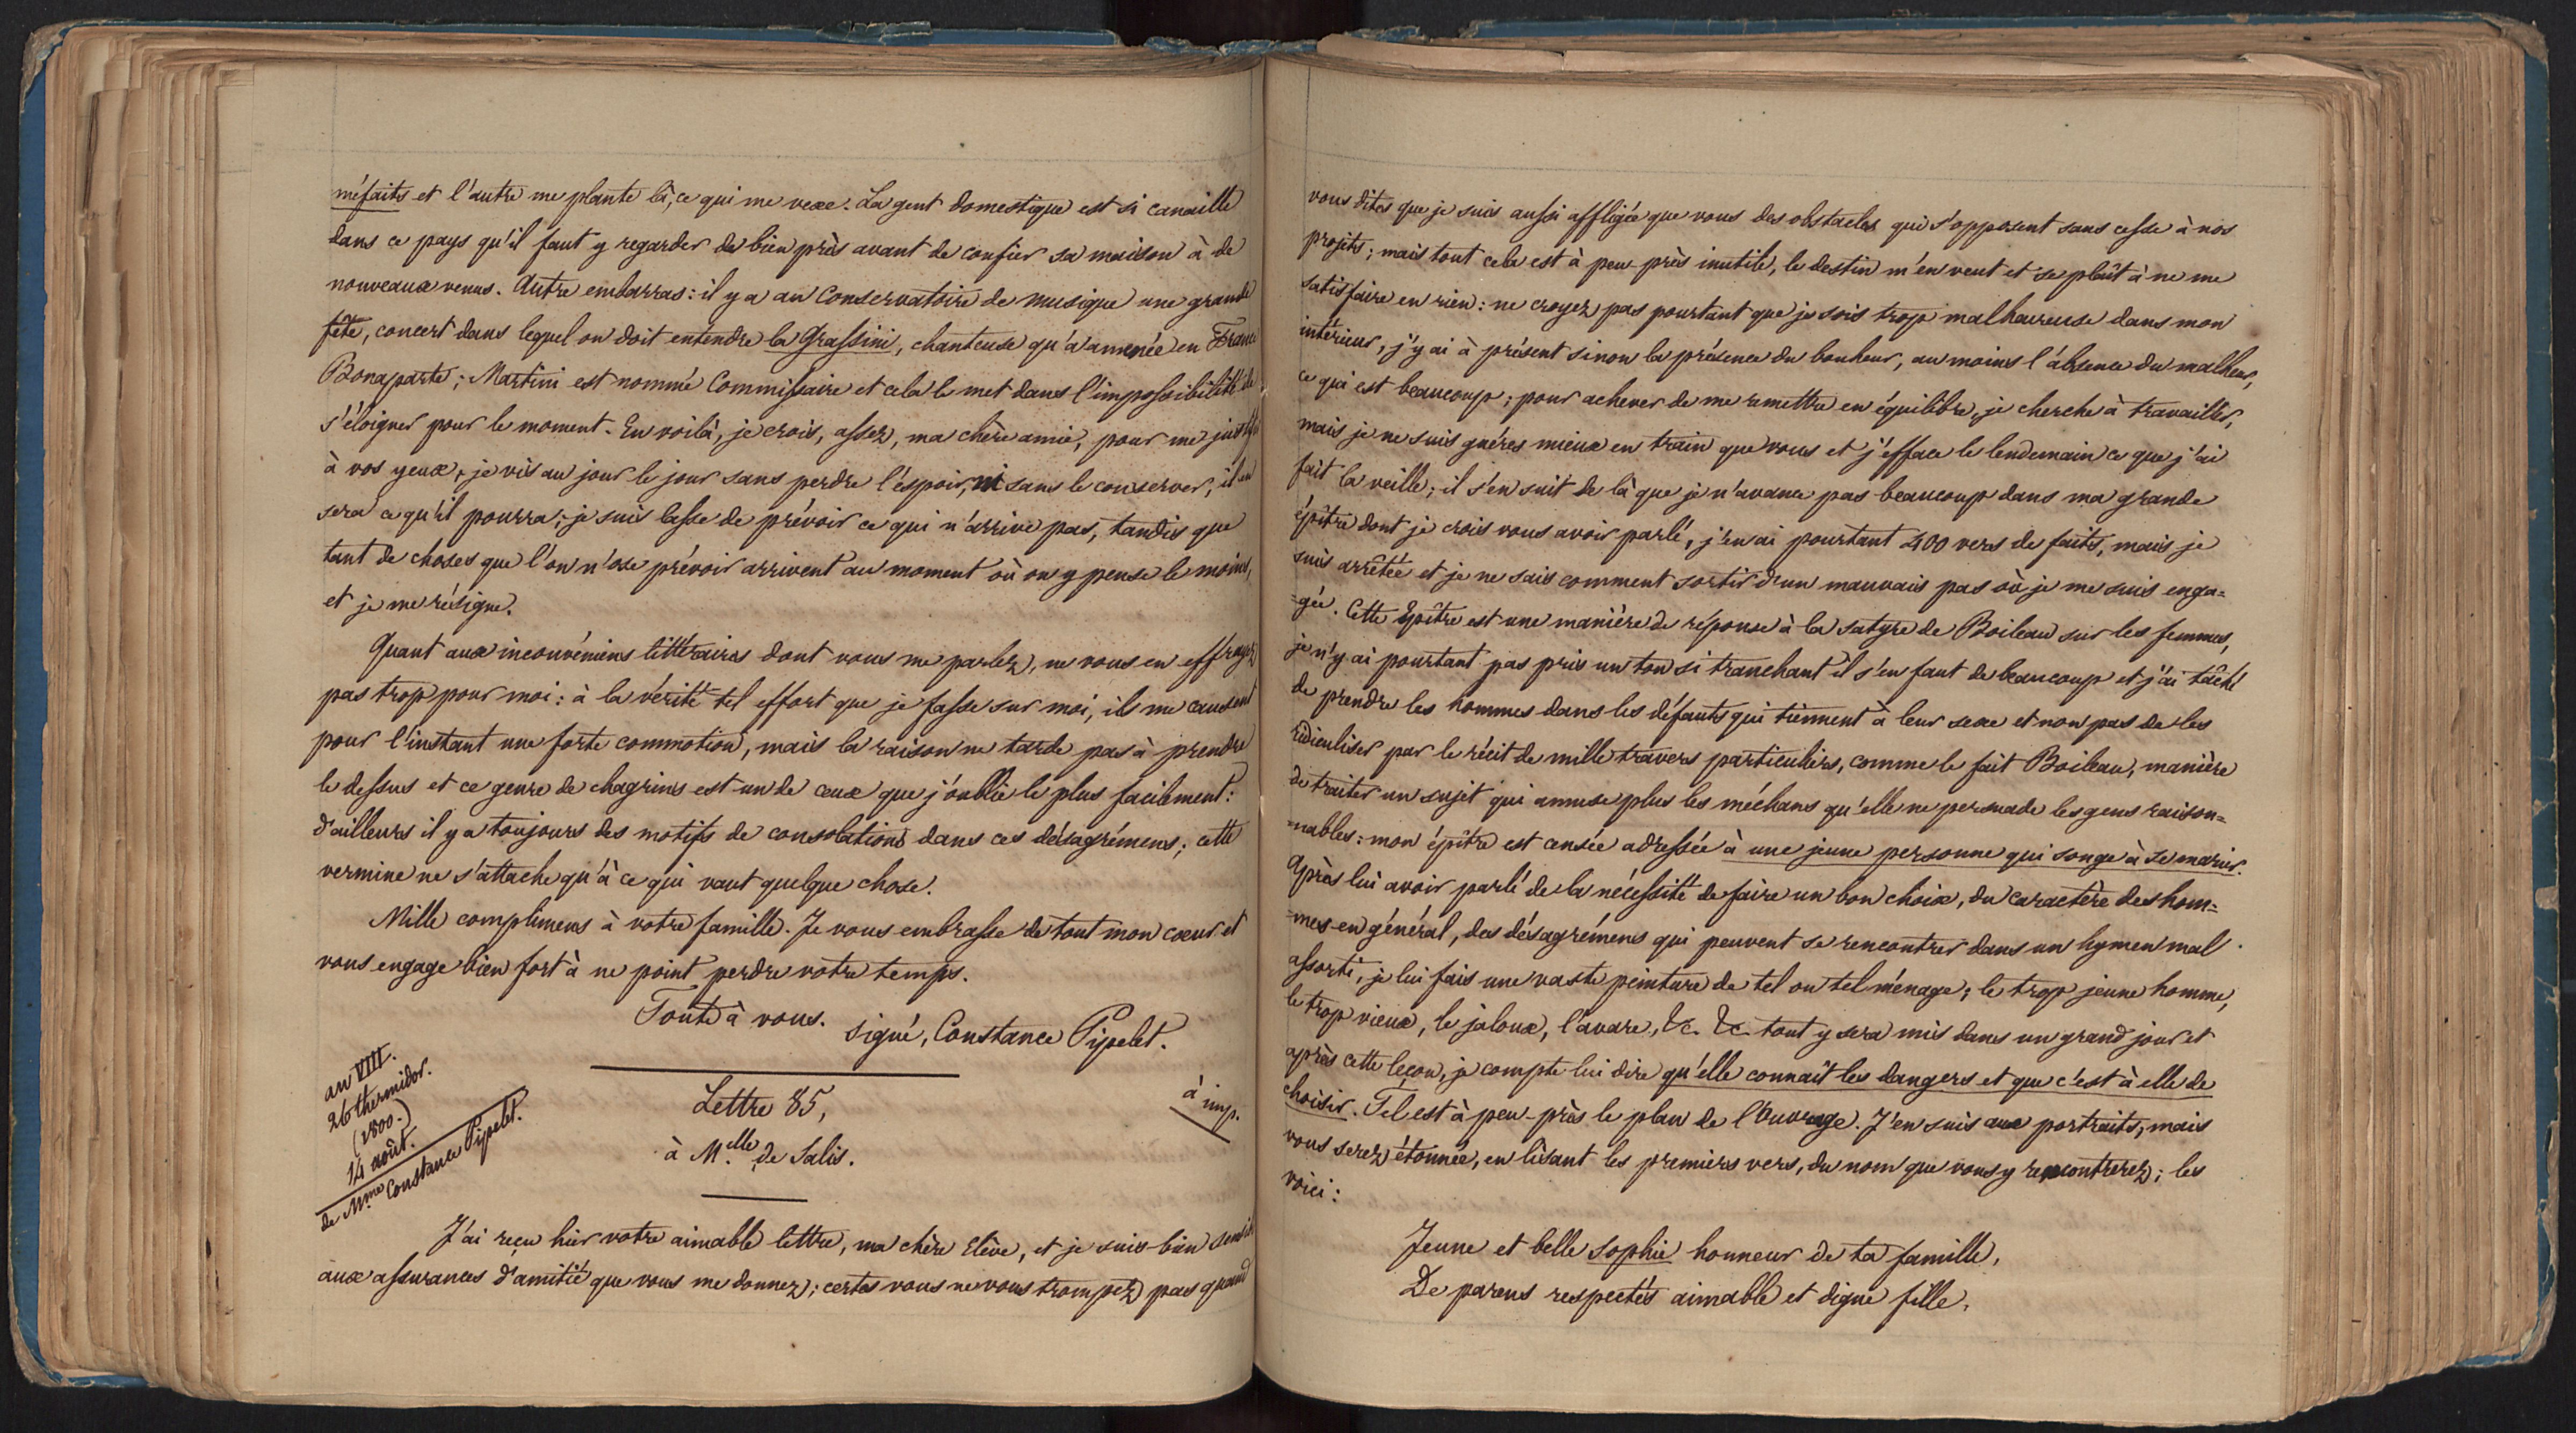 méfaits et l'autre me plante là, ce qui me vexe. La gent domestique est si canaille
dans ce pays qu'il faut y regarder de bien près avant de confier sa maison à de
nouveaux venus. Autre embarras : il y a au Conservatoire de musique une grande
fête, concert dans lequel on doit entendre la Grassini, chanteuse qu'a amenée en France
Bonaparte ; Martini est nommé Commissaire et cela le met dans l'impossibilité de
s'éloigner pour le moment. En voilà, je crois, assez, ma chère amie, pour me justifi
à vos yeux, je vis au jour le jour sans perdre l'espoir, ni sans le conserver, il en
sera ce qu'il pourra ; je suis lasse de prévoir ce qui n'arrive pas, tandis que
tant de choses que l'on n'ose prévoir arrivent au moment où on y pense le moins,
et je me résigne.
Quant aux inconvéniens littéraires dont vous me parlez, ne vous en effrayez
pas trop pour moi : à la vérité tel effort que je fasse sur moi, ils me causent
pour l'instant une forte commotion, mais la raison ne tarde pas à prendre
le dessus et ce genre de chagrins est un de ceux que j'oublie le plus facilement :
d'ailleurs il y a toujours des motifs de consolations dans ces désagrémens ; cette
vermine ne s'attache qu'à ce qui vaut quelque chose.
Mille complimens à votre famille. Je vous embrasse de tout mon cœur et
vous engage bien fort à ne point perdre votre temps.
Toute à vous.
signé, Constance Pipelet.
an VIII.
26 thermidor.
(1800.)
14 août.
de Mme Constance Pipelet.
Lettre 85,
à imp.
à Melle de Salis.
J'ai reçu hier votre aimable lettre, ma chère Elève, et je suis bien sensib
aux assurances d'amitié que vous me donnez ; certes vous ne vous trompez pas quand
vous dites que je suis aussi affligée que vous des obstacles qui s'opposent sans cesse à nos
projets ; mais tout cela est à peu-près inutile, le destin m'en veut et se plaît à ne me
satisfaire en rien : ne croyez pas pourtant que je sois trop malheureuse dans mon
intérieur, j'y ai à présent sinon la présence du bonheur, au moins l'absence du malheur,
ce qui est beaucoup ; pour achever de me remettre en équilibre, je cherche à travailler,
mais je ne suis guères mieux en train que vous et j'efface le lendemain ce que j'ai
fait la veille ; il s'en suit de là que je n'avance pas beaucoup dans ma grande
épître dont je crois vous avoir parlé, j'en ai pourtant 400 vers de faits, mais je
suis arrêtée et je ne sais comment sortir d'un mauvais pas où je me suis enga=
=gée. Cette Epître est une manière de réponse à la satyre de Boileau sur les femmes,
je n'y ai pourtant pas pris un ton si tranchant il s'en faut de beaucoup et j'ai tâché
de prendre les hommes dans les défauts qui tiennent à leur sexe et non pas de les
ridiculiser par le récit de mille travers particuliers, comme le fait Boileau, manière
de traiter un sujet qui amuse plus les méchans qu'elle ne persuade les gens raison=
=nables : mon épître est censée adressée à une jeune personne qui songe à se marier.
Après lui avoir parlé de la nécessité de faire un bon choix, du caractère des hom=
=mes en général, des désagrémens qui peuvent se rencontrer dans un hymen mal
assorti, je lui fais une vaste peinture de tel ou tel ménage ; le trop jeune homme,
le trop vieux, le jaloux, l'avare, &c. &c. tout y sera mis dans un grand jour et
après cette leçon, je compte lui dire qu'elle connait les dangers et que c'est à elle de
choisir. Tel est à peu-près le plan de l'Ouvrage. J'en suis aux portraits, mais
vous serez étonnée, en lisant les premiers vers, du nom que vous y rencontrerez ; les
voici :
Jeune et belle Sophie honneur de ta famille,
De parens respectés aimable et digne fille,